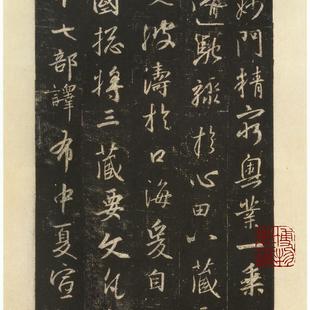 妙門精窮奧業一乘
道馳驟於心田八藏
文波濤於口海爰自
國揔將三藏要文凡
十七部譯布中夏宣